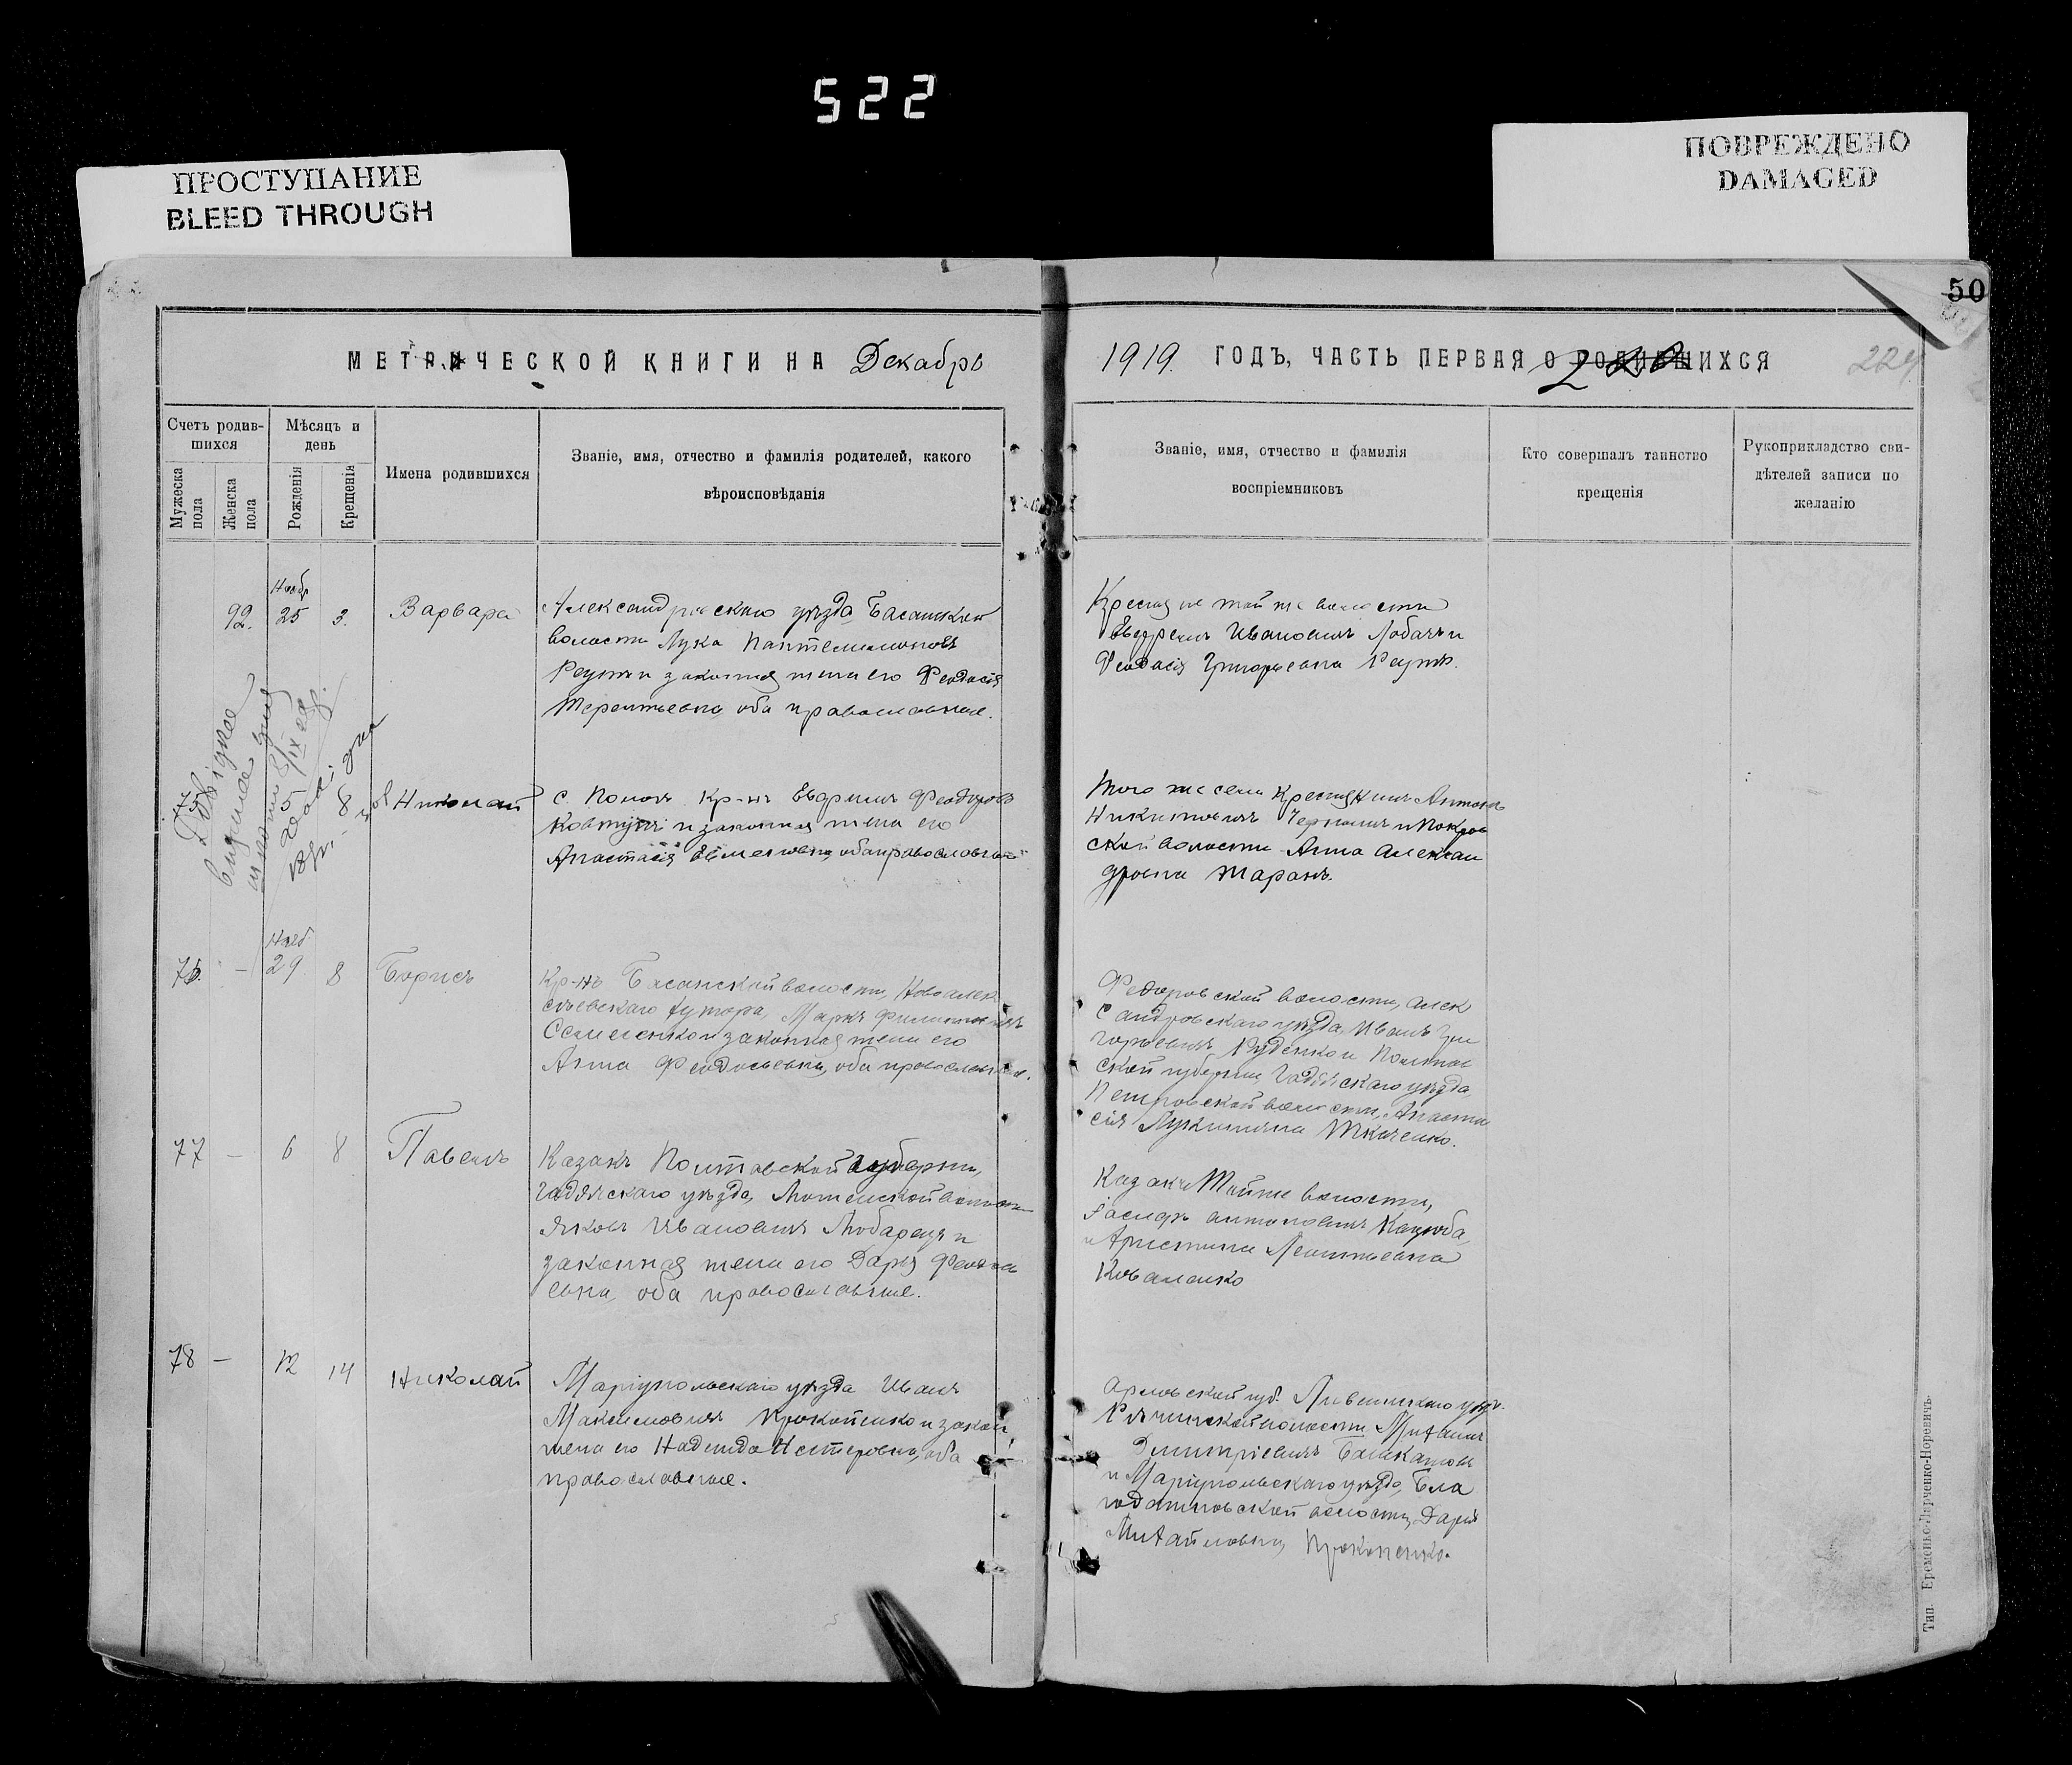 522
ПРОСТУПАНИЕ
BLEED THROUGH
ПОВРЕЖДЕНО
DAMAGED
50
МЕТРИЧЕСКОЙ КНИГИ НА Декабрь
1919. ГОДЪ, ЧАСТЬ ПЕРВАЯ О РОДИВШИХСЯ
224
Счетъ родив-
шихся
Мѣсяцъ и
день
Мужеска
пола
Женска
пола
Рожденія
Крещенія
Имена родившихся
Званіе, имя, отчество и фамилія родителей, какого
вѣроисповѣданія
Званіе, имя, отчество и фамилія
воспріемниковъ
Кто совершалъ таинство
крещенія
Рукоприкладство сви-
дѣтелей записи по
желанію
Ноябр
92. 25 3. Варвара
Александровскаго уѣзда Басанской
волости Лука Пантелимоновъ
и законная жена его Феодосія
Терентьевна, оба православные.
той же волости
Иванович Лобачъ и
Феодосія Григорьевна
75 5 8 Николай
с. Пологъ Кр-нъ Феодоровъ
Ковтунъ и законная жена его
Анастасія оба православные
Того же села Крестьянинъ Антонъ
Никитовичъ и Покров
ской волости Анна Алексан
дровна Таранъ.
Нояб.
76. - 29 8 Борисъ
Кр-нъ Басанской волости, Ново алек
сѣевскаго хутора, Маркъ Филипповичъ
Семененко и законная жена его
Анна Феодосьевна, оба православные.
Федоровской волости, Алек
сандровскаго уѣзда, Иванъ Гри
горьевичъ Руденко и Полтав
ской губерніи, Гадячскаго уѣзда,
Петровской волости, Анаста
сія Лукинична Ткаченко.
77 - 6 8 Павелъ
Казакъ Полтавской губерніи,
Гадячскаго уѣзда, волости
Яковъ Ивановичъ Любарецъ и
законная жена его Дарья
евна, оба православные.
Казакъ Той же волости,
антоновичъ
и Леонтьевна
Коваленко
78 - 12 14 Николай
Маріупольскаго уѣзда Иванъ
Максимовичъ Прокопенко и закон.
жена его Надежда Нестеровна, оба
православные.
Орловской губ. Ливенскаго уѣзд.
волости Михаилъ
Дмитріевичъ Башкатовъ
и Маріупольскаго уѣзда, Бла
годатновской волости, Дарья
Михайловна Прокопенко.
Тип. Еременко-Марченко-Норевичъ.